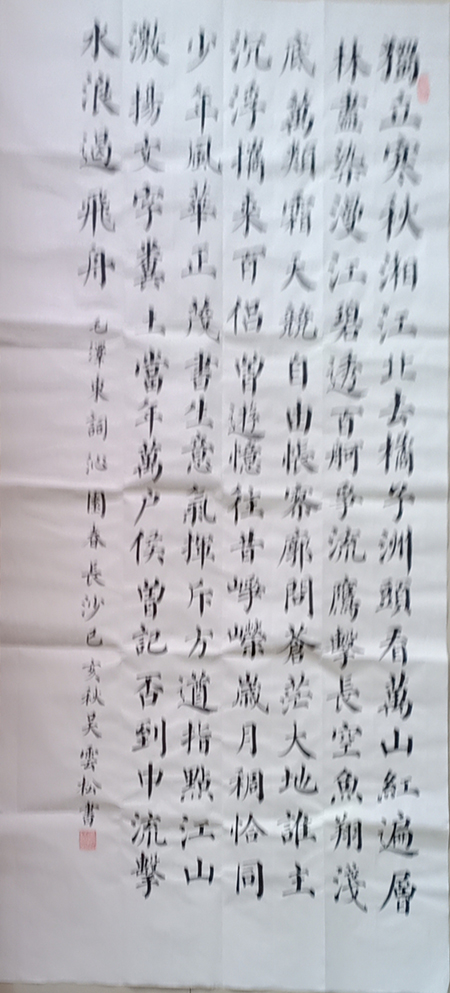 獨立寒秋湘江北去橘子洲頭看萬山紅遍層
林盡染漫江碧透百舸爭流鷹擊長空魚翔淺
底萬類霜天競自由悵寥廓問蒼茫大地誰主
沉浮攜來百侶曾遊憶往昔崢嶸歲月稠恰同
少年風華正茂書生意氣揮斥方遒指點江山
激揚文字糞土當年萬户侯曾記否到中流擊
水浪遏飛舟 毛澤東詞沁園春長沙己亥秋吴雲松書